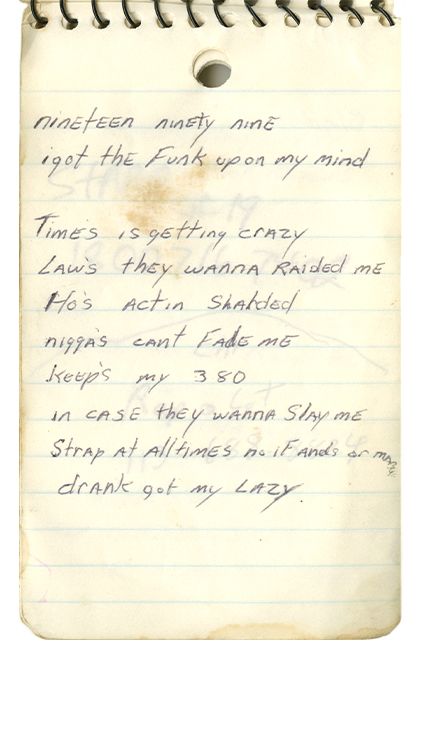 nineteen ninety nine
i got the Funk upon my mind
Time's is getting crazy
Law's they wanna Raided me
Ho's actin Shaded
nigga's cant Fade me
Keep's my 380
in case they wanna Slay me
Strap at all times no iF ands or
drank got my Lazy